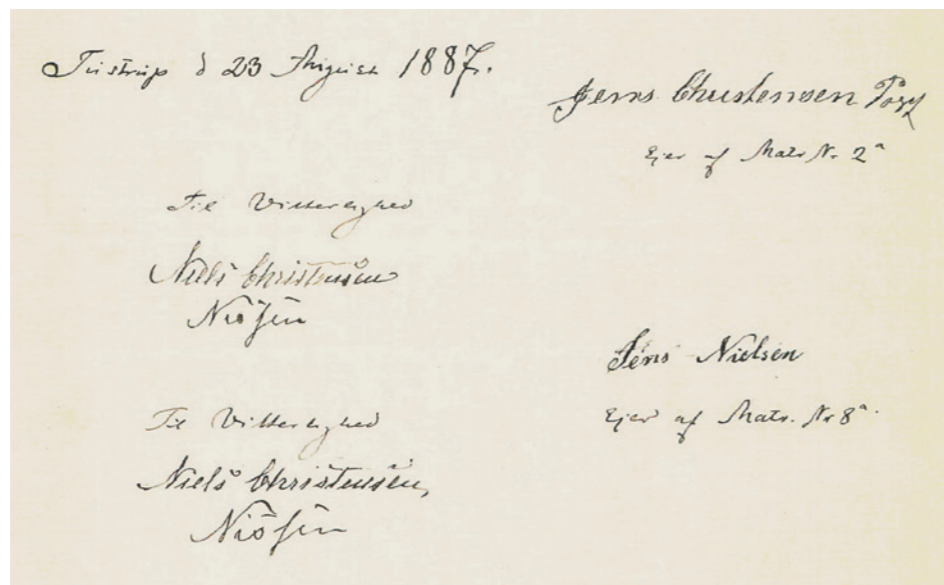 Tustrup d 23 August 1887.
Jens Christensen
Ejer af Matr Nr 2a
Til Vitterlighed
Niels Christensen
Jens Nielsen
Ejer af Matr. Nr 8a.
Til Vitterlighed
Niels Christensen,